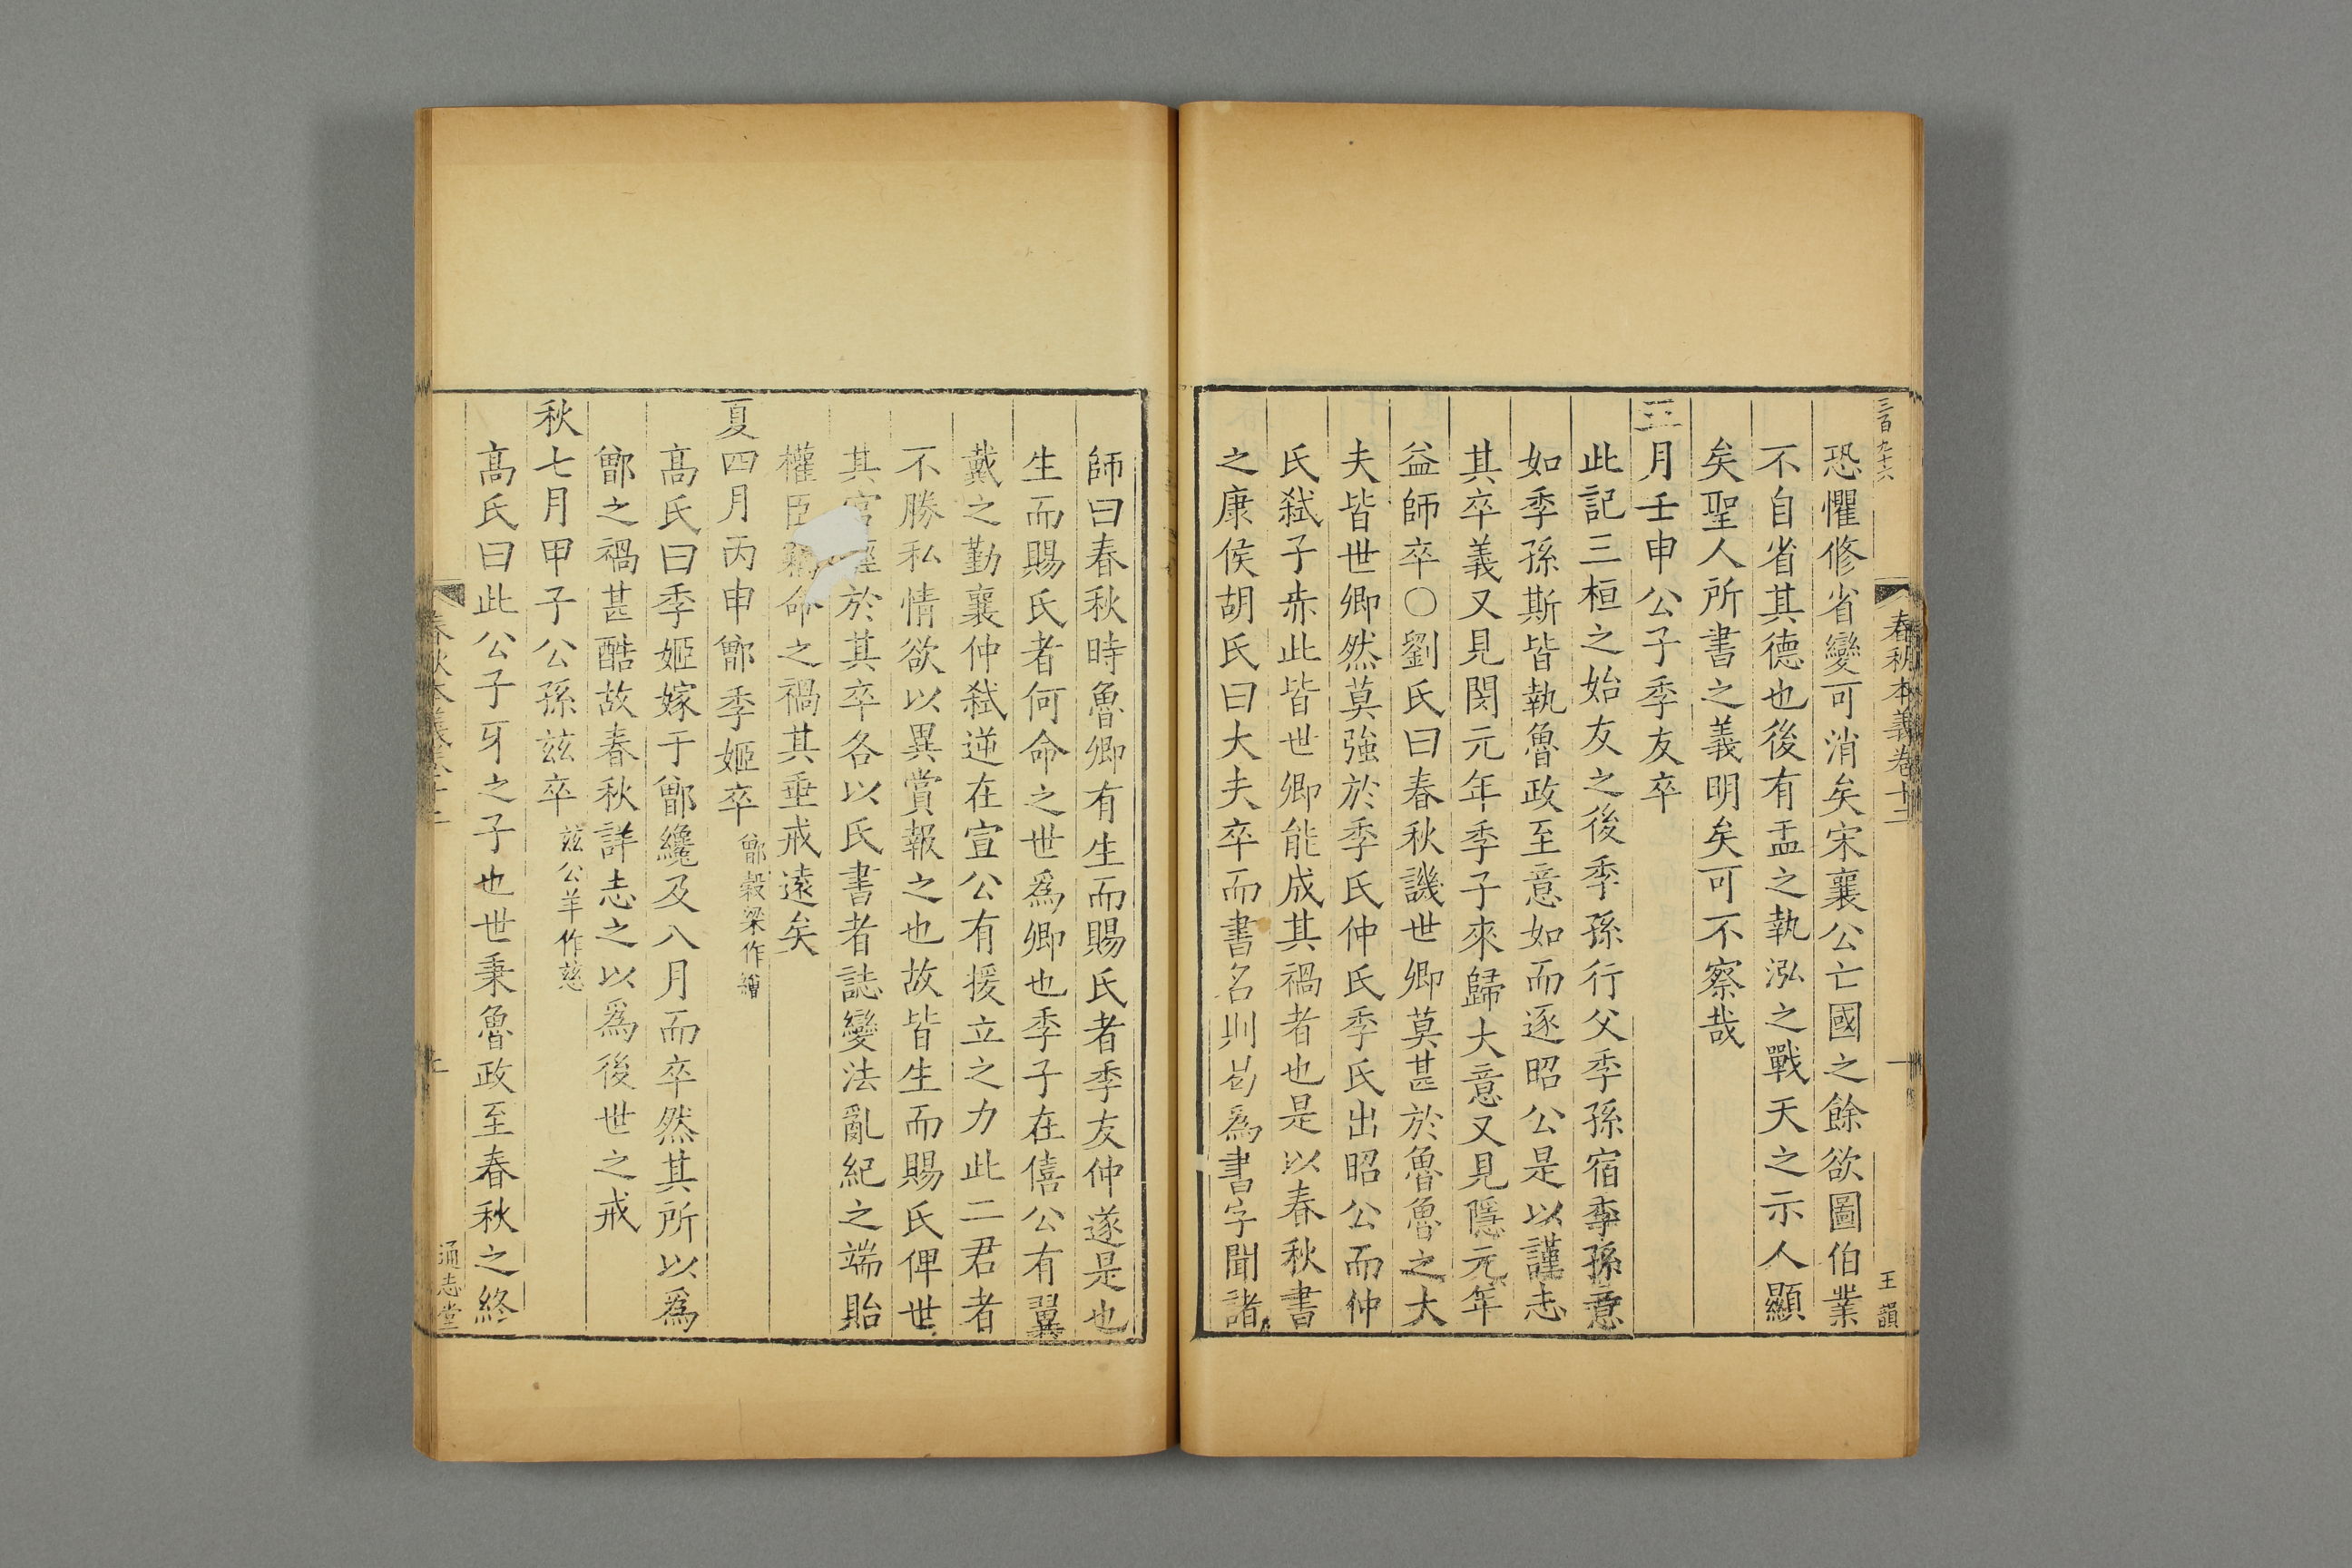 三百九十六
春秋本義卷十二
王韻
恐懼修省變可消矣宋襄公亡國之餘欲圖伯業
不自省其德也後有盂之執泓之戰天之示人顯
矣聖人所書之義明矣可不察哉
三月壬申公子季友卒
此記三桓之始友之後季孫行父季孫宿季孫意
如季孫斯皆執魯政至意如而逐昭公是以謹志
其卒義又見閔元年季子來歸大意又見隱元年
益師卒○劉氏曰春秋譏世卿莫甚於魯魯之大
夫皆世卿然莫強於季氏仲氏季氏出昭公而仲
氏弑子赤此皆世卿能成其禍者也是以春秋書
之康侯胡氏曰大夫卒而書名則曷爲書字聞諸
師曰春秋時魯卿有生而賜氏者季友仲遂是也
生而賜氏者何命之世爲卿也季子在僖公有翼
戴之勤襄仲弑逆在宣公有援立之力此二君者
不勝私情欲以異賞報之也故皆生而賜氏俾世
其官經於其卒各以氏書者誌變法亂紀之端貽
權臣竊命之禍其垂戒遠矣
夏四月丙申鄫季姬卒鄫穀梁作繒
高氏曰季姬嫁于鄫纔及八月而卒然其所以爲
鄫之禍甚酷故春秋詳志之以爲後世之戒
秋七月甲子公孫茲卒茲公羊作慈
高氏曰此公子牙之子也世秉魯政至春秋之終
春秋本義卷十二
通志堂